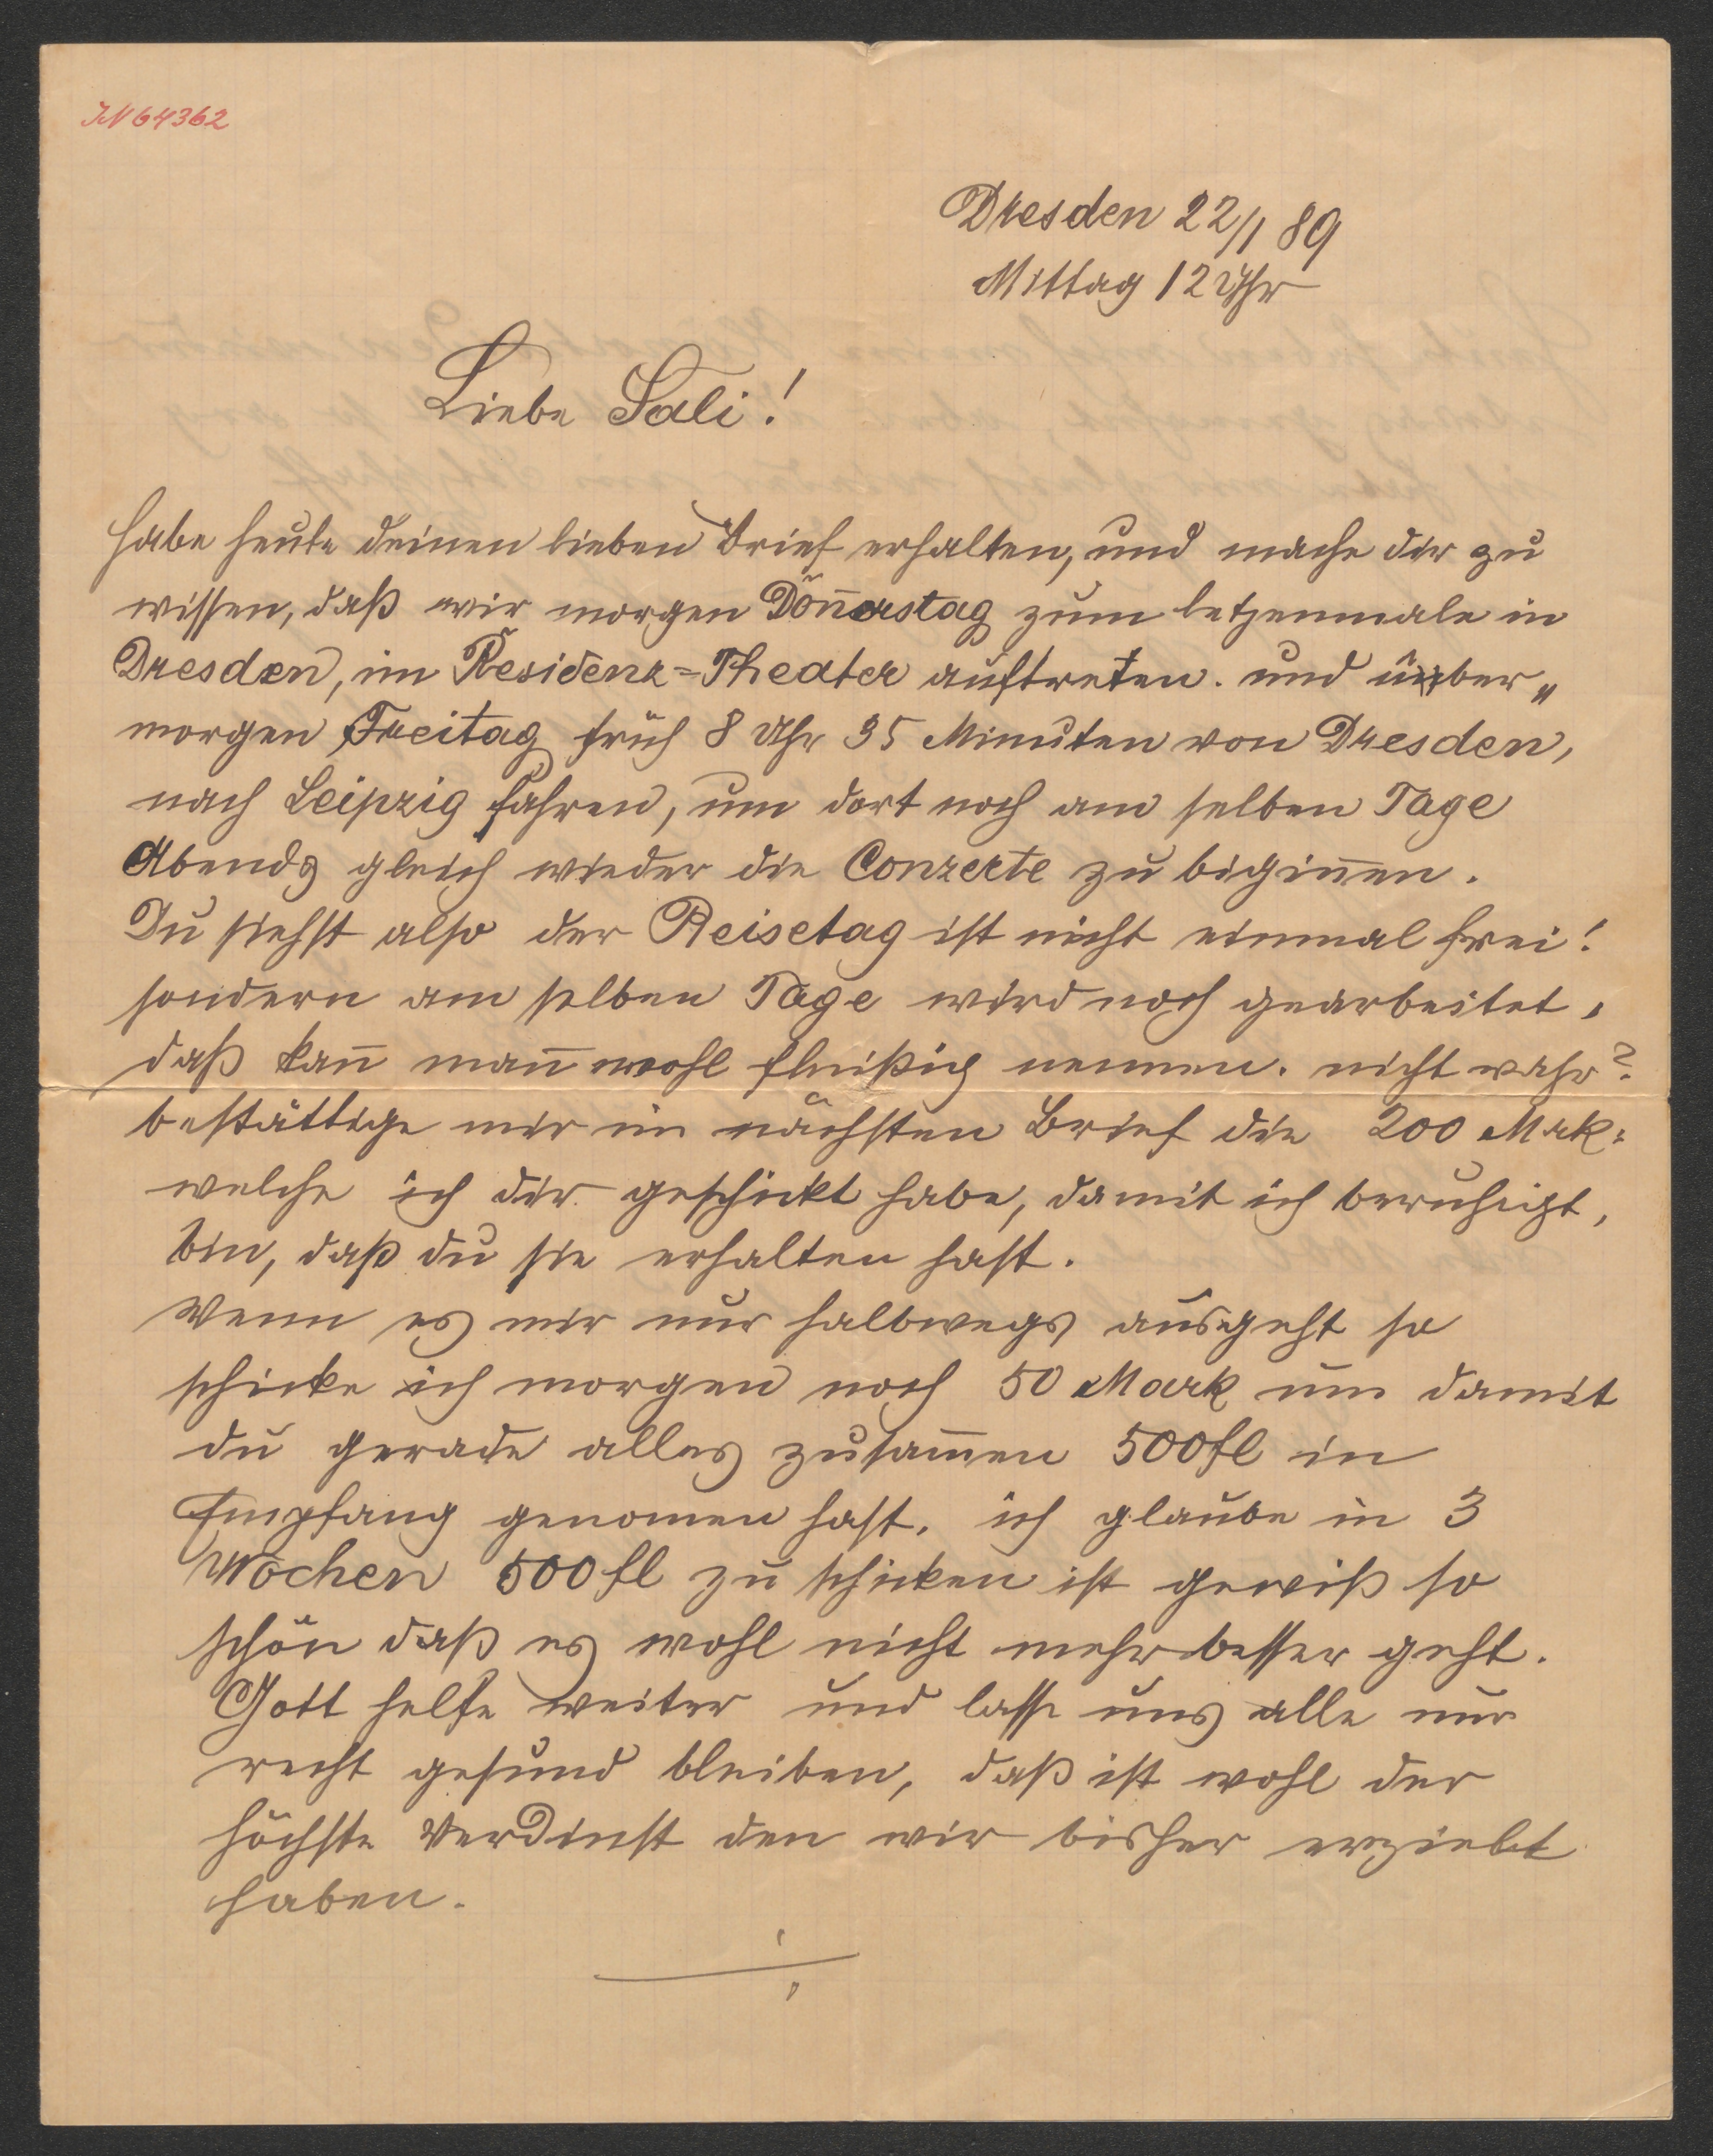 IN 64362
Dresden 22/1 89
Mittag 12 Uhr
Liebe Sali!
habe heute deinen lieben Brief erhalten, und mache dir zu
wissen, daß wir morgen Don̄erstag zum letzenmale in
Dresden, im Residenz=Theater auftreten. und über„
morgen Freitag früh 8 Uhr 35 Minuten von Dresden,
nach Leipzig fahren, um dort noch am selben Tage
Abends gleich wieder die Conzerte zu begin̄en.
Du siehst also der Reisetag ist nicht einmal frei!
sondern am selben Tage wird noch gearbeitet,
daß kan̄ man̄ wohl fleißig nennen. nicht wahr?
bestättige mir im nächsten Brief die 200 Mrk:
welche ich dir geschickt habe, damit ich beruhigt,
bin, daß du sie erhalten hast.
Wenn es mir nur halbwegs ausgeht so
schicke ich morgen noch 50 Mark um damit
du gerade alles zusam̄en 500 fl in
Empfang genomen hast. ich glaube in 3
Wochen 500 fl zu schicken ist gewiß so
schön daß es wohl nicht mehr besser geht.
Gott helfe weiter und lasse uns alle nur
recht gesund bleiben, daß ist wohl der
höchste Verdinst den wir bisher erziehlt
haben.